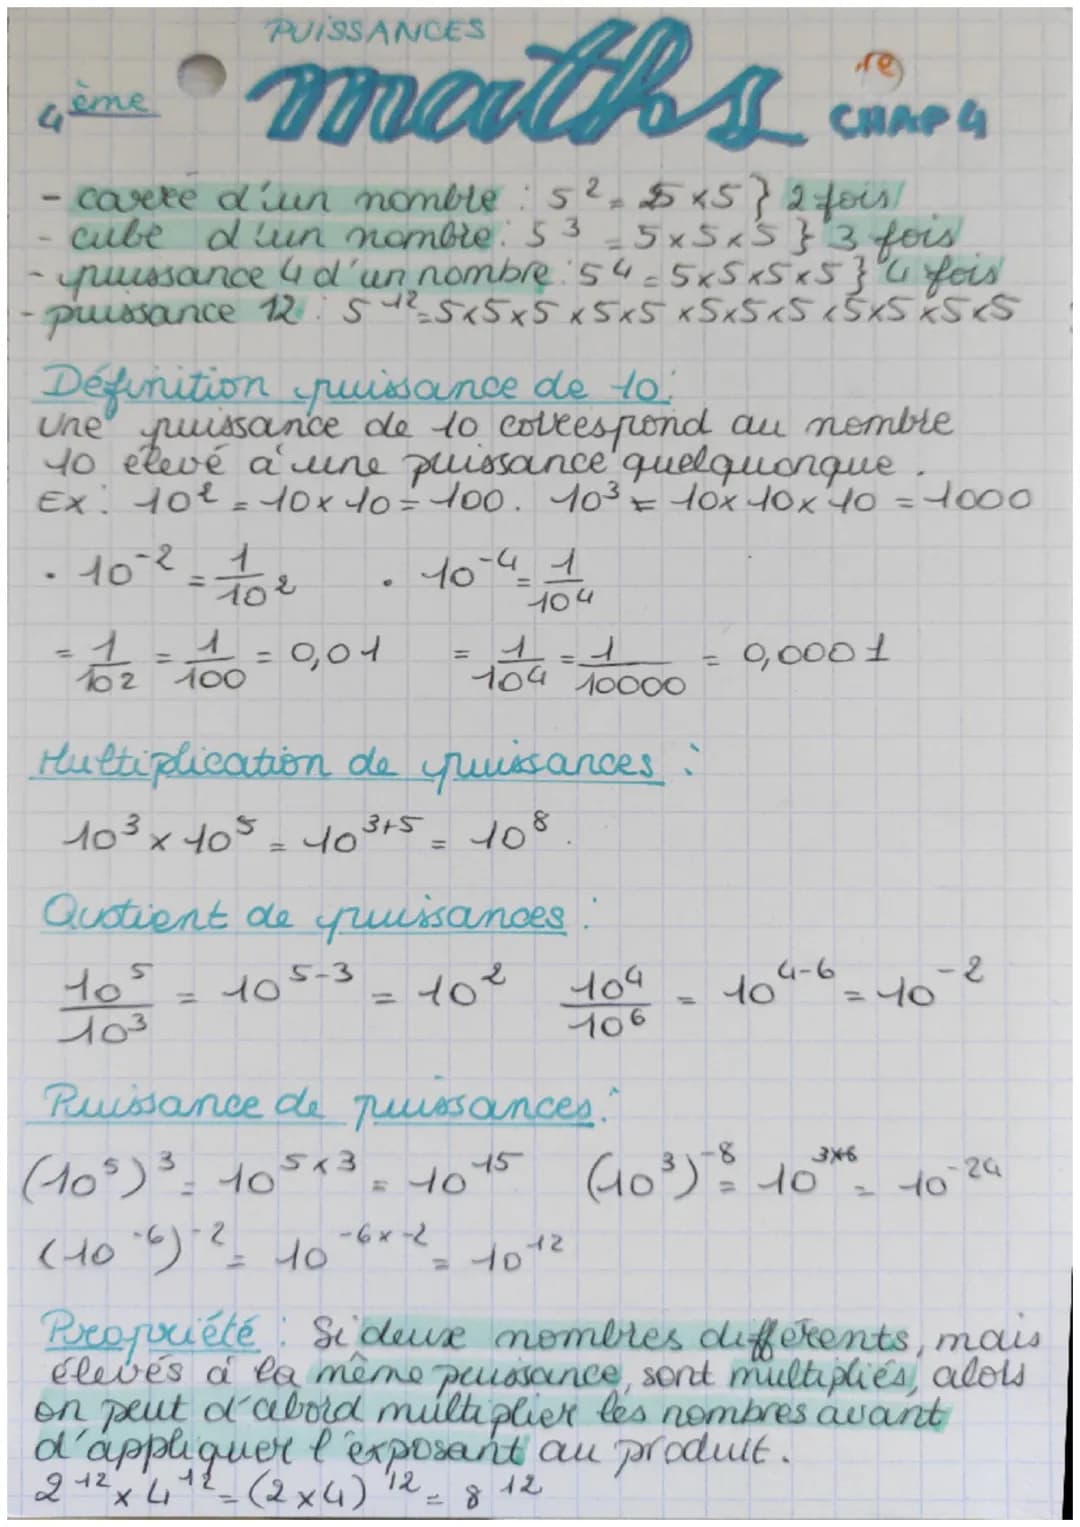 PUISSANCES
4ème maths re CHAP 4
- carré d'un nombre : 5² = 5 x 5 } 2 fois
- cube d'un nombre : 5³ = 5x5x5 } 3 fois
- puissance 4 d'un nombre : 5⁴ = 5x5x5x5 } 4 fois
- puissance 12 : 5¹² = 5x5x5x5x5x5x5x5x5x5x5x5
Définition puissance de 10 :
Une puissance de 10 correspond au nombre
10 élevé à une puissance quelquonque.
Ex : 10² = 10x10 = 100. 10³ = 10x10x10 = 1000
. 10⁻² = 1/10² . 10⁻⁴ = 1/10⁴
= 1/10² = 1/100 = 0,01 = 1/10⁴ = 1/10000 = 0,0001
Multiplication de puissances :
10³ x 10⁵ = 10³⁺⁵ = 10⁸.
Quotient de puissances :
10⁵/10³ = 10⁵⁻³ = 10² 10⁴/10⁶ = 10⁴⁻⁶ = 10⁻²
Puissance de puissances :
(10⁵)³ = 10⁵ˣ³ = 10¹⁵ (10³)⁻⁸ = 10³ˣ⁻⁸ = 10⁻²⁴
(10⁻⁶)⁻² = 10⁻⁶ˣ⁻² = 10¹²
Propriété : Si deux nombres différents, mais
élevés à la même puissance, sont multipliés, alors
on peut d'abord multiplier les nombres avant
d'appliquer l'exposant au produit.
2¹² x 4¹² = (2x4)¹² = 8¹²